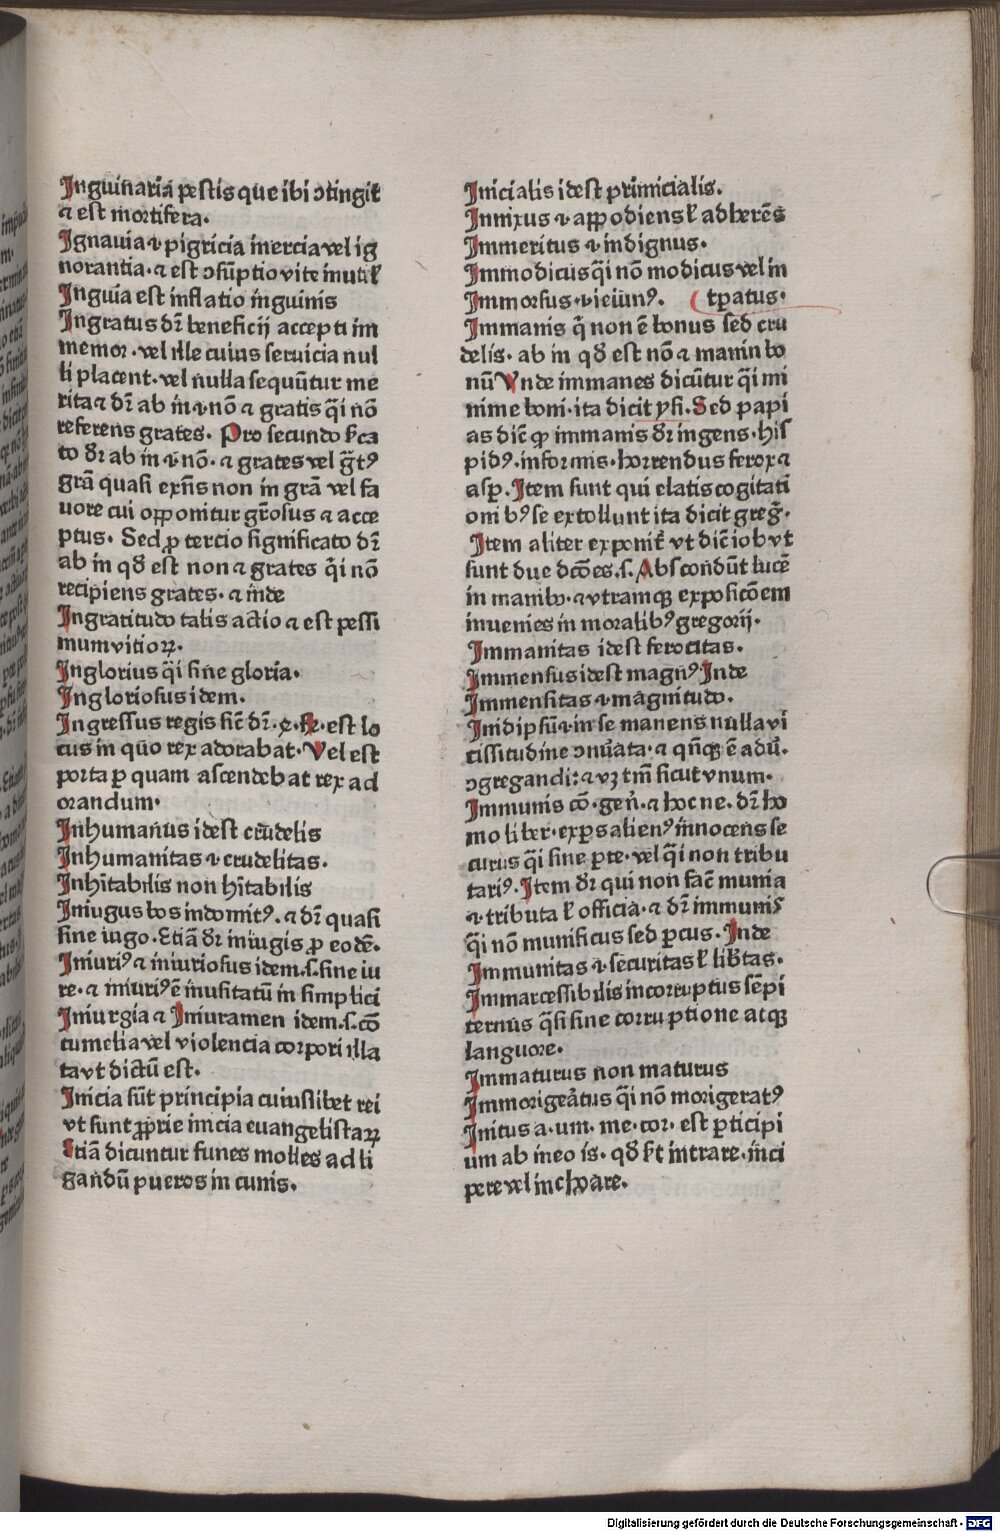 Inguinaria pestis que ibi ↄtingit᷑
⁊ est mortifera.
Ignauia ⁊ pigricia inercia vel ig
norantia. ⁊ est ↄsūptio vite inutil̕
Inguia est inflatio inguinis
Ingratus dr̄ beneficij accepti im
memor. vel ille cuius seruicia nul
li placent. vel nulla sequūtur me
rita ⁊ dr̄ ab in ⁊ nō ⁊ gratis q̄si nō
referens grates. Pro secundo sca
to dr̄ ab in ⁊ nō. ⁊ grates vel gr̄tꝰ
grā quasi exn̄s non in grā vel fa
uore cui opponitur gr̄osus ⁊ acce
ptus. Sed ꝓ tercio significato dr̄
ab in qđ est non ⁊ grates q̄si nō
recipiens grates. ⁊ inde
Ingratitudo talis actio ⁊ est pessi
mum vitioꝝ.
Inglorius q̄si sine gloria.
Ingloriosus idem.
Ingressus regis sic̄ dr̄ . est lo
cus in quo rex adorabat. Vel est
porta ꝑ quam ascendebat rex ad
orandum.
Inhumanus idest crudelis
Inhumanitas ⁊ crudelitas.
Inhītabilis non hītabilis
Iniugus bos indomitꝰ. ⁊ dr̄ quasi
sine iugo. Etiā dr̄ iniugis ꝓ eodē.
Iniuriꝰ ⁊ iniuriosus idem .s. sine iu
re. ⁊ iniuriꝰ ē inusitatū in simplici
Iniurgia ⁊ Iniuramen idem .s. cō
tumelia vel violencia corpori illa
ta vt dictū est.
Inicia sūt principia cuiuslibet rei
vt sunt ꝓprie inicia euangelistaꝝ
Etiā dicuntur funes molles ad li
gandū pueros in cunis.
Inicialis idest primicialis.
Innixus ⁊ appodiens l̕ adherēs
Immeritus ⁊ indignus.
Immodicus q̄si nō modicus vel in
Immorsus. ⁊ ieiunꝰ. ( tꝑatus.
Immanis q̄si non ē bonus sed cru
delis. ab in qđ est nō ⁊ manin bo
nū Vnde immanes dicūtur q̄si mi
nime boni. ita dicit ysi. Sed papi
as dic̄ ꝙ immanis dr̄ ingens. his
pidꝰ. informis. horrendus ferox ⁊
asꝑ. Item sunt qui elatis cogitati
onibꝰ se extollunt ita dicit greḡ.
Item aliter exponit᷑ vt dic̄ iob vt
sunt due dcōes .s. Abscondūt lucē
in manibꝰ. ⁊ vtramqꝫ exposicōem
inuenies in moralibꝰ gregorij.
Immanitas idest ferocitas.
Immensus idest magnꝰ Inde
Immensitas ⁊ magnitudo.
Inidipsū ⁊ in se manens nulla vi
cissitudine ↄmutata. ⁊ qn̄qꝫ ē adū.
ↄgregandi: ⁊ vꝫ tm̄ sicut vnum.
Immunis cō. gen̄. ⁊ hoc ne. dr̄ ho
mo liber. expers alienꝰ innocens se
curus q̄si sine ꝑte. vel q̄si non tribu
tariꝰ. Item dr̄ qui non fac̄ munia
⁊ tributa l̕ officia. ⁊ dr̄ immunis
q̄si nō munificus sed ꝑcus. Inde
Immunitas ⁊ securitas l̕ lib̄tas.
Immarcessibilis incorruptus sēpi
ternus q̄si sine corruptione atqꝫ
languore.
Immaturus non maturus
Immorigeratus q̄si nō morigeratꝰ
Initus a. um. me. cor. est ꝑticipi
um ab ineo is. qđ st̄ intrare. inci
pere vel inchoare.
Digitalisierung gefördert durch die Deutsche Forschungsgemeinschaft - DFG